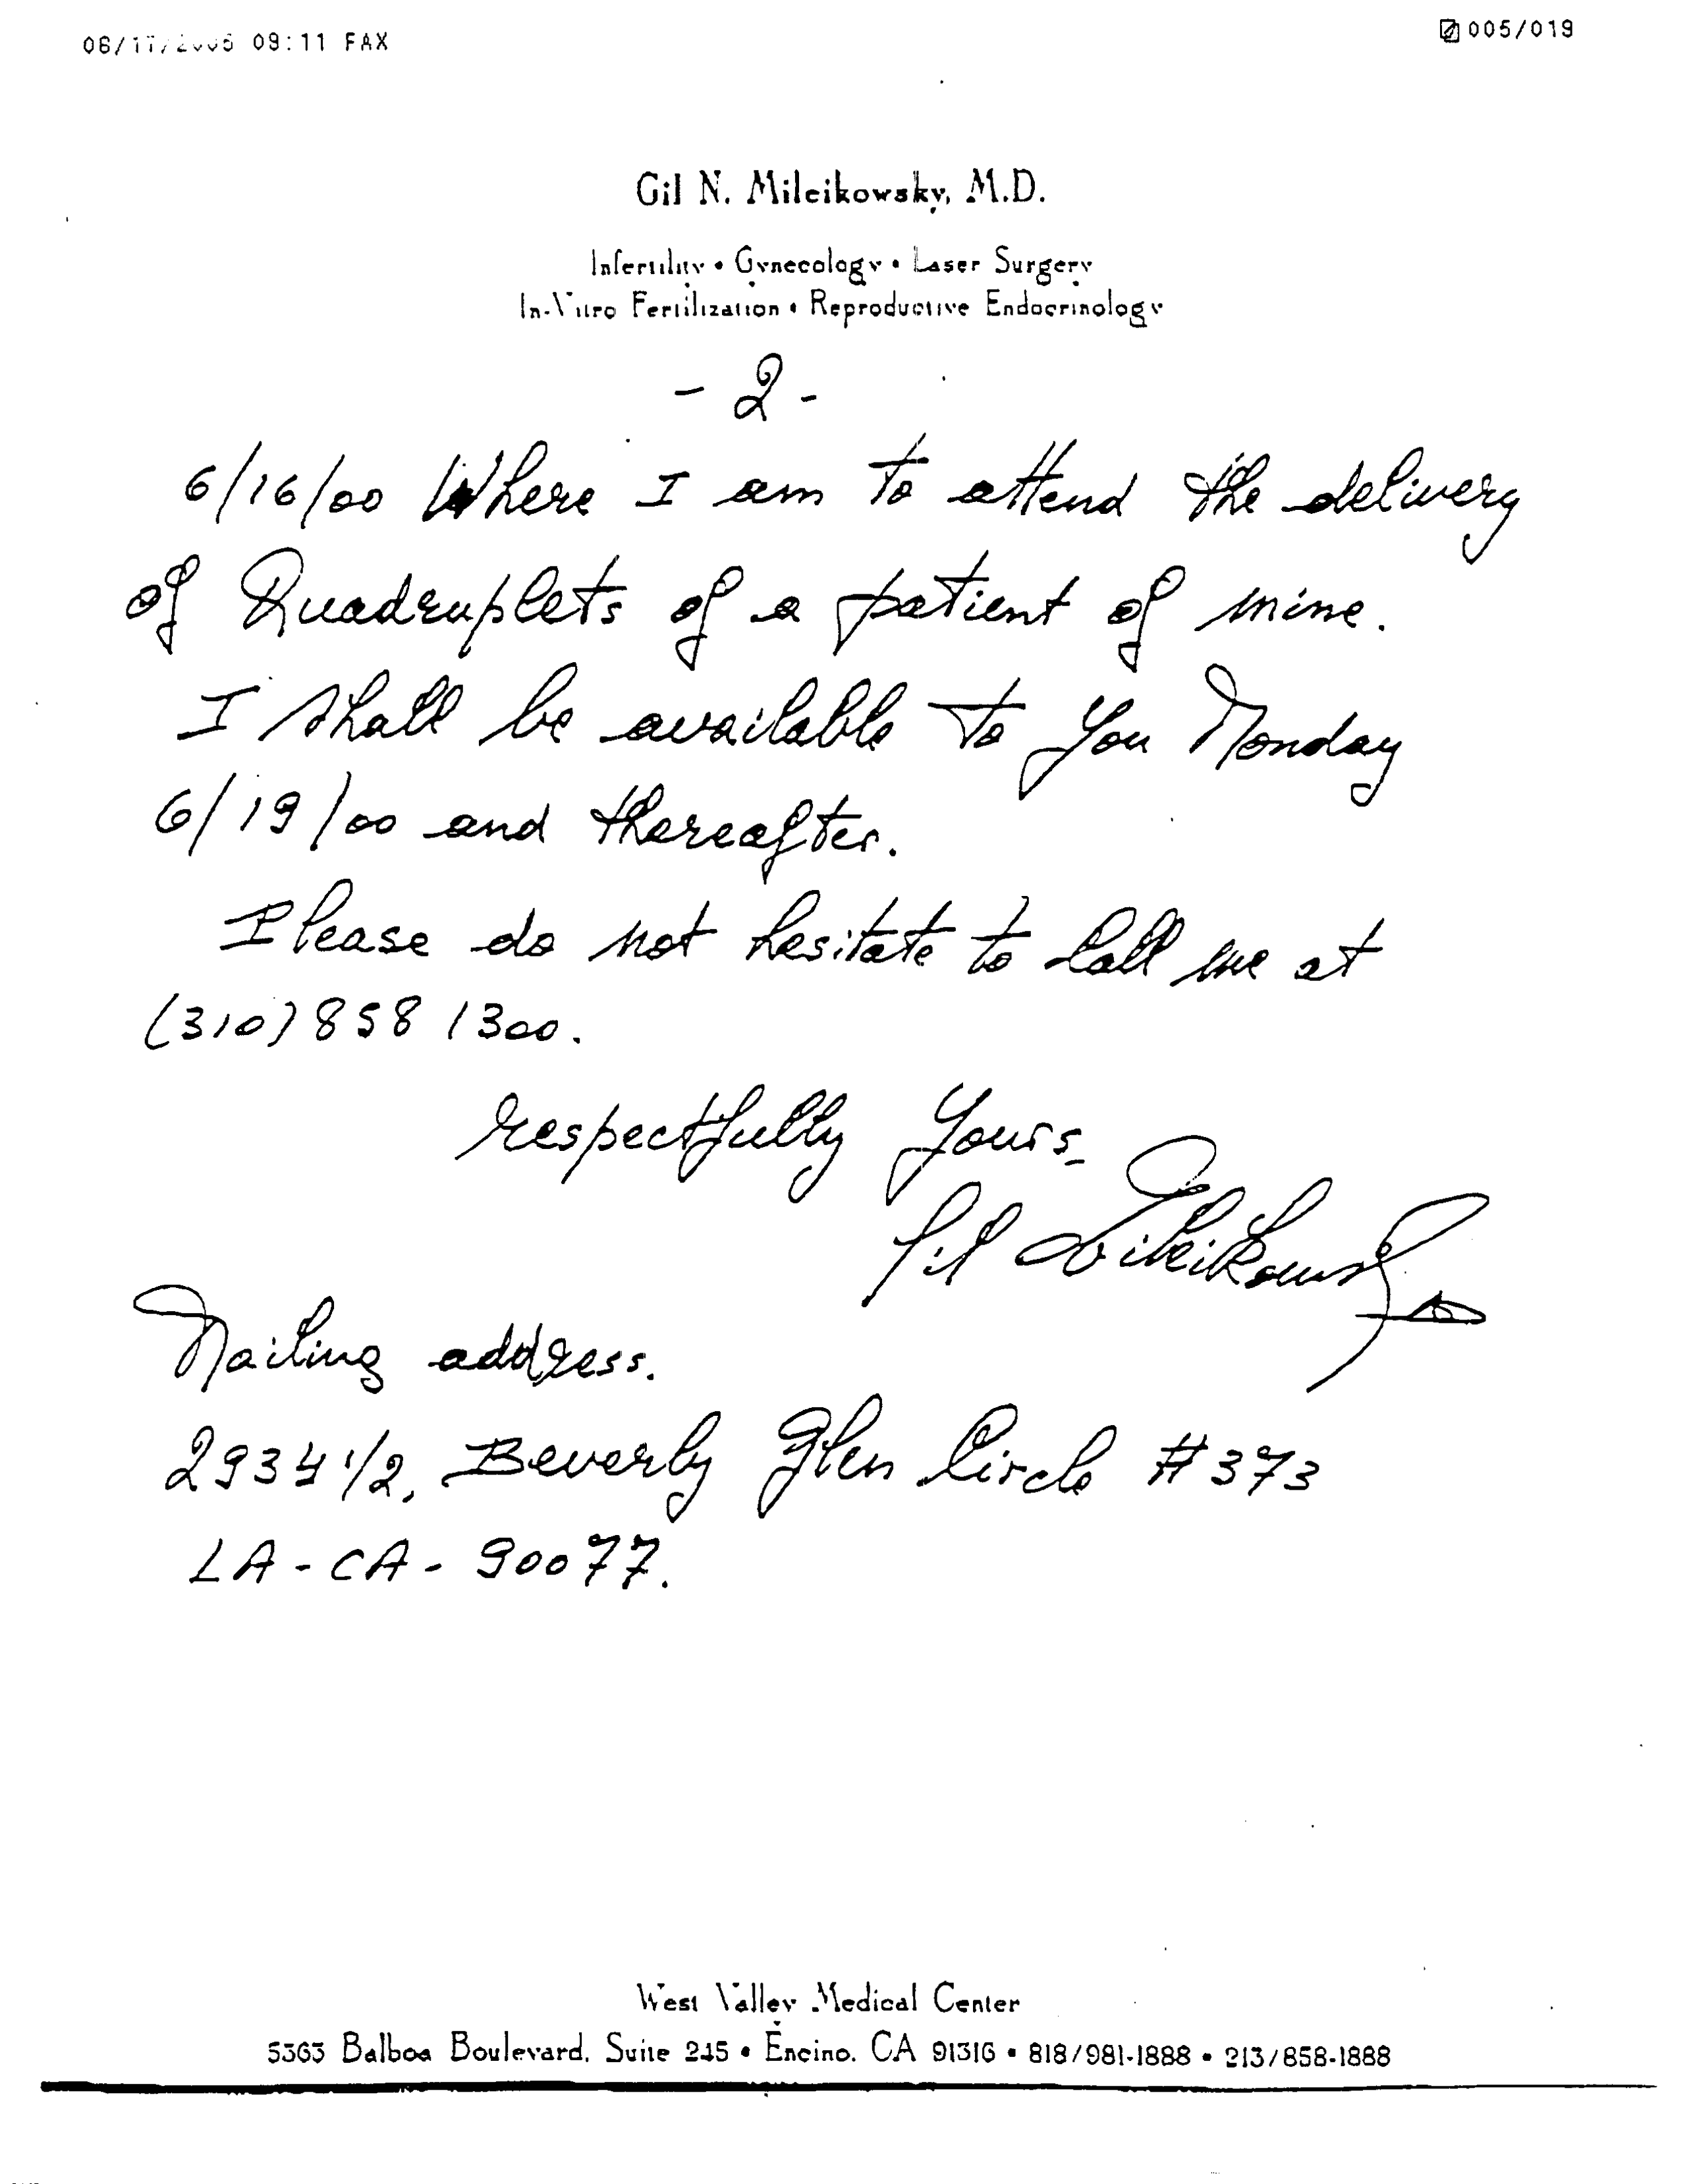 09:11 FAX
005/019
Gil N. Mileikowsky, M.D.
Infertility • Gynecology • Laser Surgery
In-Vitro Fertilization • Reproductive Endocrinology
- 2 -
6/16/00 Where I am to attend the delivery
of Quadruplets of a patient of mine.
I shall be available to you Monday
6/19/00 and thereafter.
Please do not hesitate to call me at
(310) 858 1300.
respectfully yours,
Gil Mileikowsky
Mailing address.
2934 1/2, Beverly Glen Circle #373
LA - CA - 90077.
West Valley Medical Center
5363 Balboa Boulevard, Suite 245 • Encino, CA 91316 • 818/981-1888 • 213/858-1888